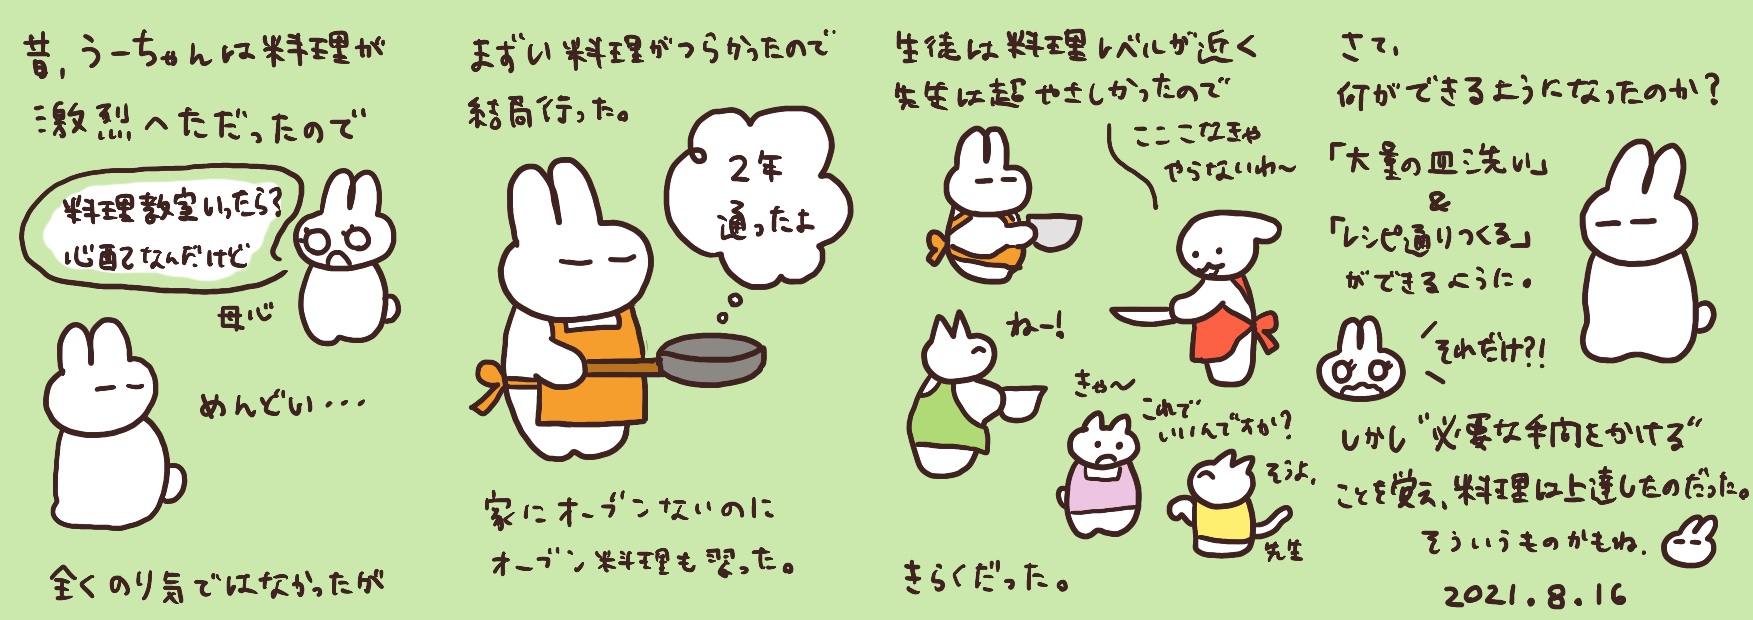 昔、うーちゃんは料理が
激烈へただったので
料理教室いったら?
心配てなんだけど
母心
めんどい・・・
全くのり気ではなかったが
まずい料理がつらかったので
結局行った。
2年
通ったよ
家にオーブンないのに
オーブン料理も習った。
生徒は料理レベルが近く
先生は超やさしかったので
ここここなきゃ
やらないわ〜
ねー!
きゃ〜
これで
いいんですか?
そうよ、
先生
きらくだった。
さて、
何ができるようになったのか?
「大量の皿洗い」
&
「レシピ通りつくる」
ができるように。
それだけ?!
しかし"必要な手間をかける"
ことを覚え、料理は上達したのだった。
そういうものかもね、
2021.8.16